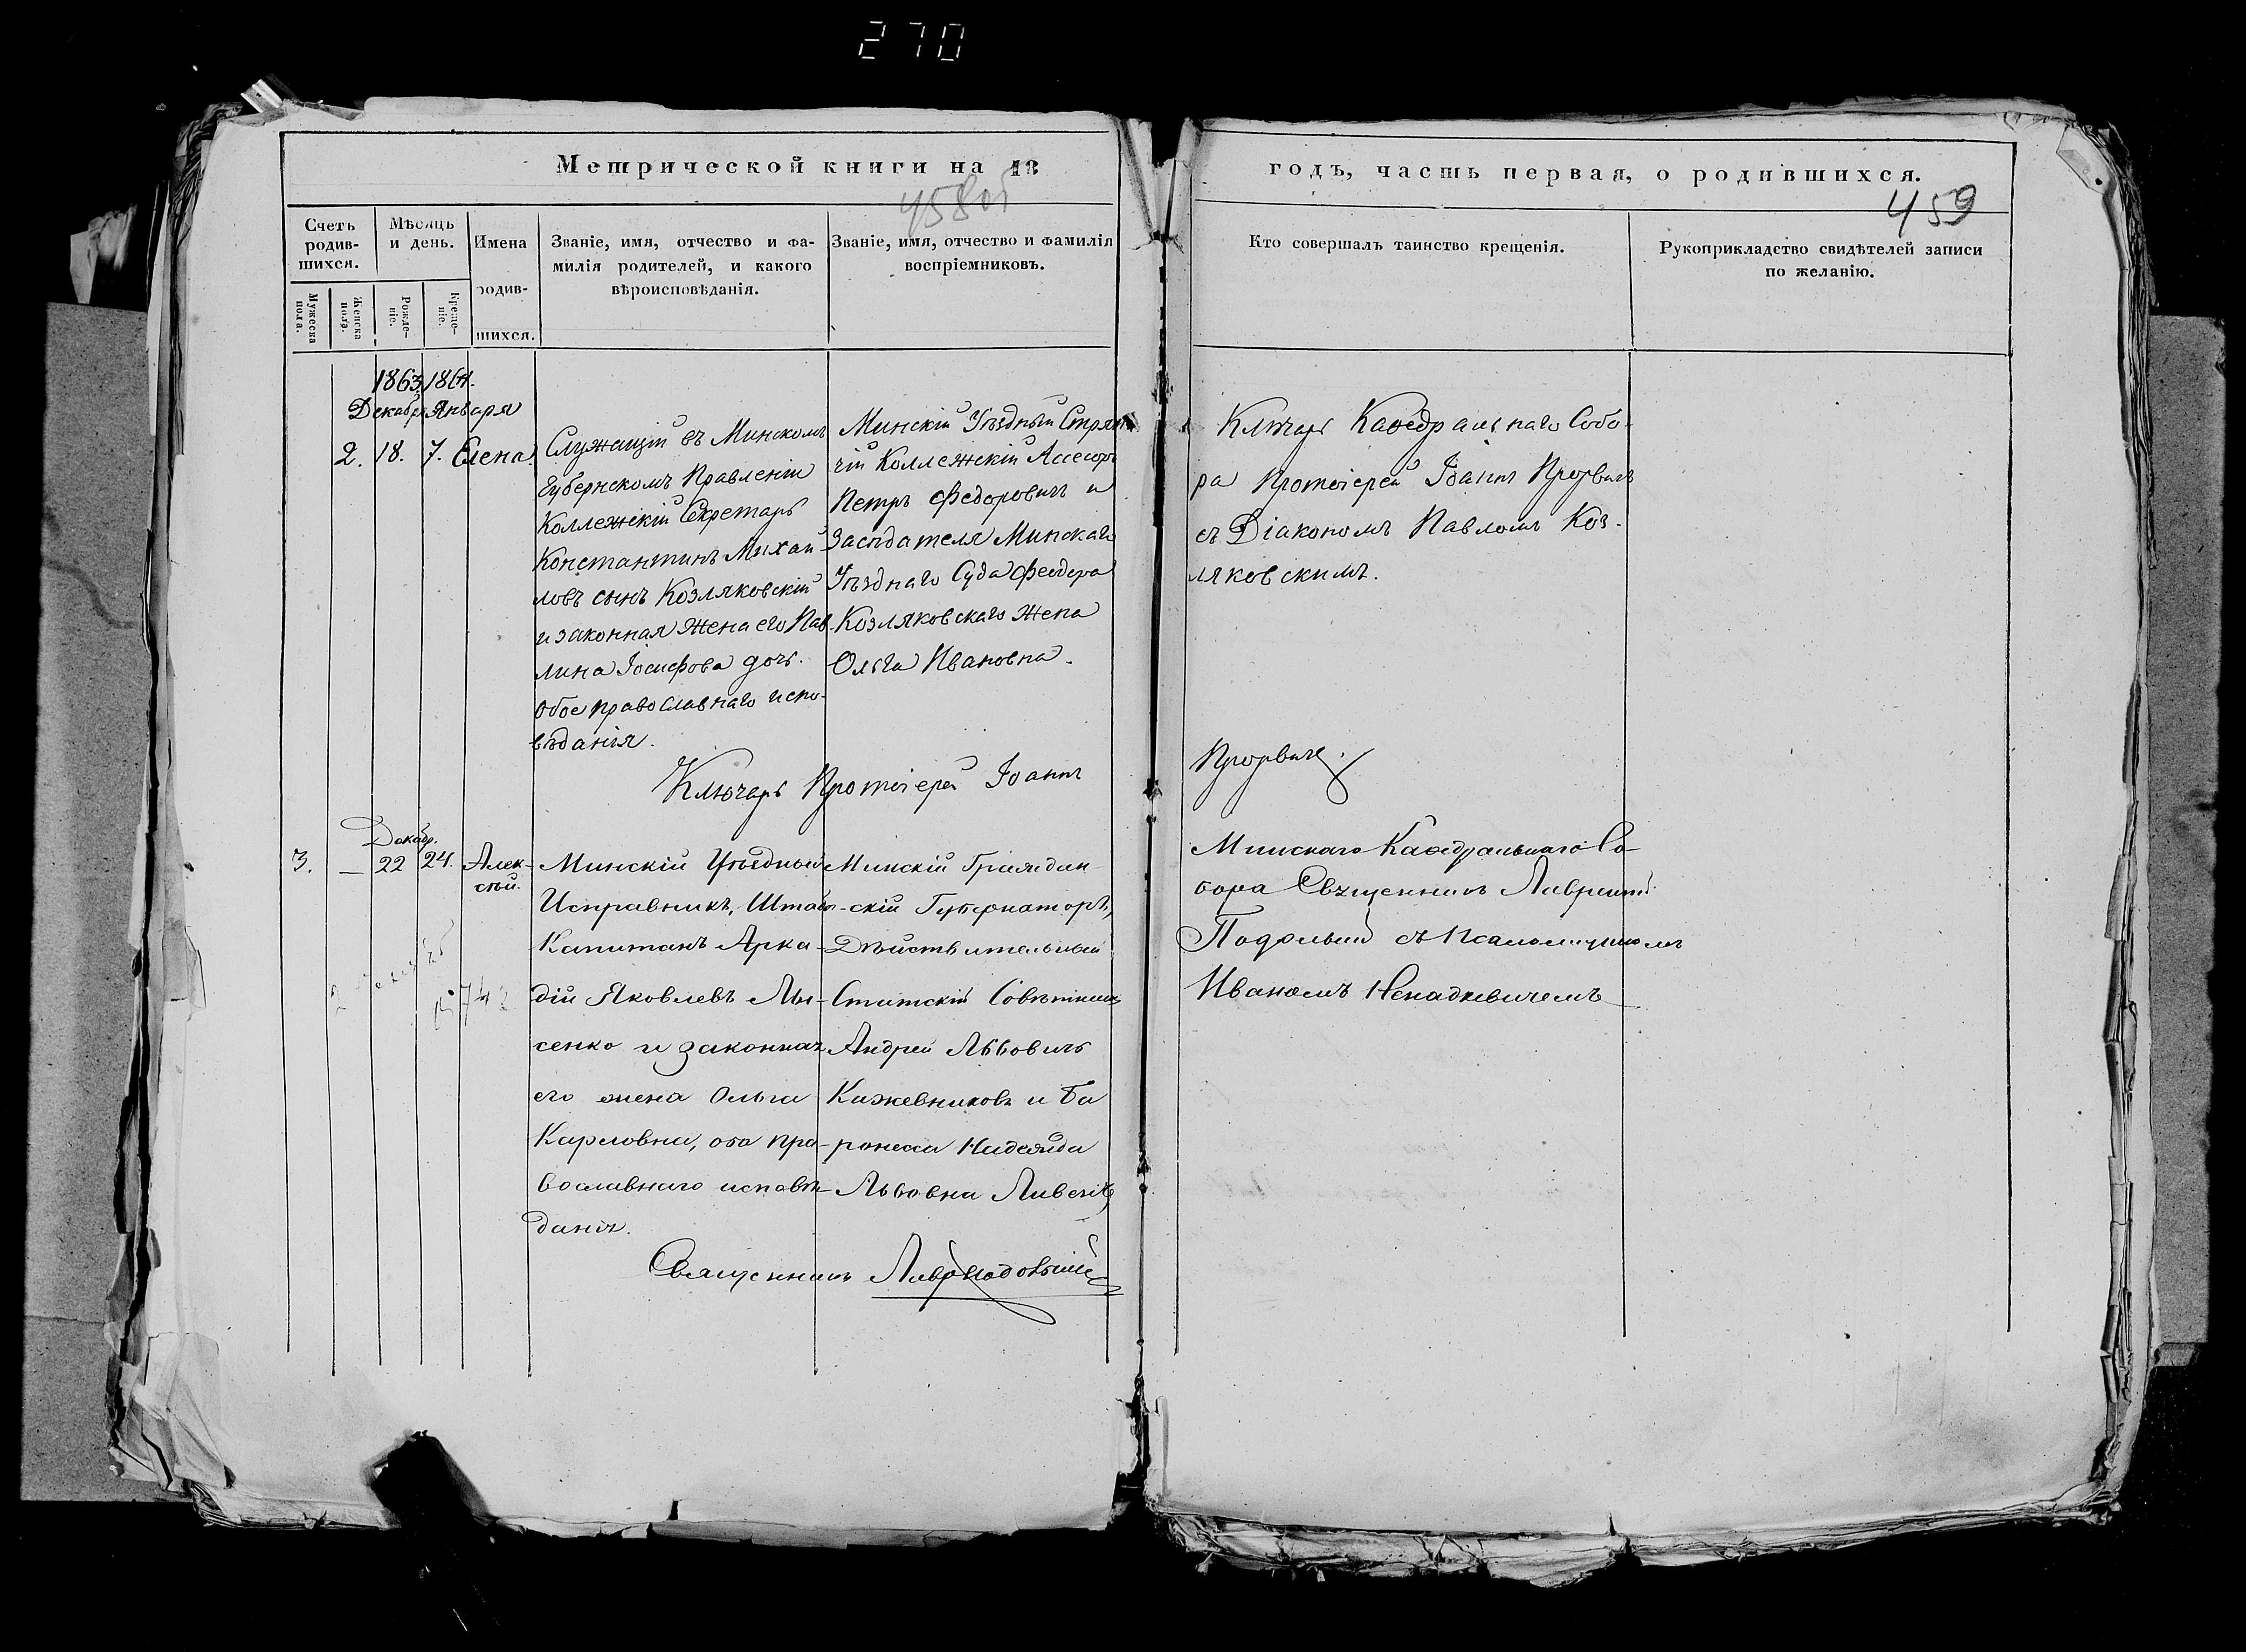 270
Метрической книги на 18
458об
годъ, часть первая, о родившихся.
459
Счетъ родив-шихся.
Мѣсяцъ и день.
Имена родив-шихся.
Званіе, имя, отчество и фа-
милія родителей, и какого
вѣроисповѣданія.
Званіе, имя, отчество и фамилія
воспріемниковъ.
Кто совершалъ таинство крещенія.
Рукоприкладство свидѣтелей записи
по желанію.
Мужеска пола.
Женска пола.
Рожде-ніе.
Креще-ніе.
1863 1864.
Декабр. Января
2. 18. 7. Елена.
Служащій въ Минскомъ
Губернскомъ Правленіи
Коллежскій Секретарь
Константинъ Михай-
ловъ сынъ Козляковскій
и законная жена его Пав-
лина Іосифова дочь.
Обое православнаго испо-
вѣданія.
Минскій Уѣздный Стряп
чій Коллежскій Асесоръ
Петръ Федоровичъ и
Засѣдателя Минскаго
Уѣзднаго Суда Феодора
Козляковскаго жена
Ольга Ивановна.
Ключарь Каѳедральнаго Собо-
ра Протоіерей Іоаннъ Прорвичъ
съ Діакономъ Павломъ Коз-
ляковскимъ.
Ключарь Протоіерей Іоаннъ
Прорвичъ.
Декабр.
3. — 22 24. Алек-
сѣй.
Минскій Уѣздный
Исправникъ, Штабъ-
Капитанъ Арка-
дій Яковлевъ Лы-
сенко и законная
его жена Ольга
Карловна, оба пра-
вославнаго исповѣ-
данія.
Минскій Граждан-
скій Губернаторъ,
Дѣйствительный
Статскій Совѣтникъ
Андрей Львовичъ
Кожевниковъ и Ба
ронесса Надежда
Львовна
Минскаго Каѳедральнаго Со-
бора Священникъ Лаврентій
съ Псаломщикомъ
Иваномъ Ненадкевичемъ
Священникъ